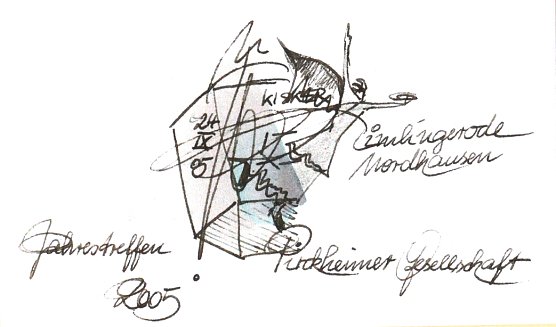 KISKABA
24
IX
05
Limlingerode
Nordhausen
Jahrestreffen
2005
Pirckheimer Gesellschaft